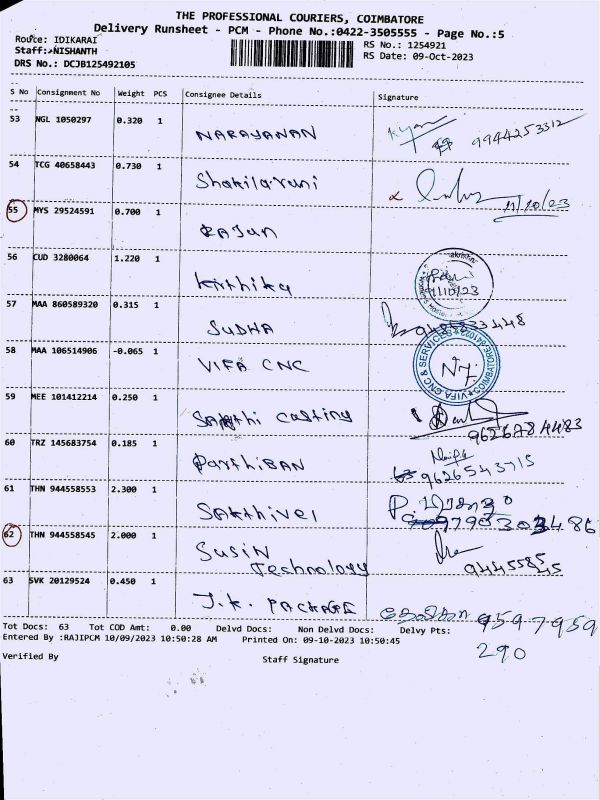 THE PROFESSIONAL COURIERS, COIMBATORE
Delivery Runsheet - PCM - Phone No.:0422-3505555 - Page No.:5
Route: IDIKARAI
RS No.: 1254921
Staff: NISHANTH
RS Date: 09-Oct-2023
DRS No.: DCJB125492105
S No Consignment No Weight PCS Consignee Details Signature
53 NGL 1050297 0.320 1 NARAYANAN 9944253312
54 TCG 40658443 0.730 1 Shakilaruni 11/10/23
55 MYS 29524591 0.700 1 RAJUN
56 CUD 3280064 1.220 1 Kirthika 11/10/23
57 MAA 860589320 0.315 1 SUDHA
58 MAA 106514906 -0.065 1 VIFA CNC VIFA CNC & SERVICES COIMBATORE
59 MEE 101412214 0.250 1 Sakthi casting 9626784483
60 TRZ 145683754 0.185 1 Parthiban 9626543715
61 THN 944558553 2.300 1 Sakthivel
62 THN 944558545 2.000 1 Susin Technology 9444558545
63 SVK 20129524 0.450 1 J.K. PACKAGE 9597959
290
Tot Docs: 63 Tot COD Amt: 0.00 Delvd Docs: Non Delvd Docs: Delvy Pts:
Entered By :RAJIPCM 10/09/2023 10:50:28 AM Printed On: 09-10-2023 10:50:45
Verified By
Staff Signature